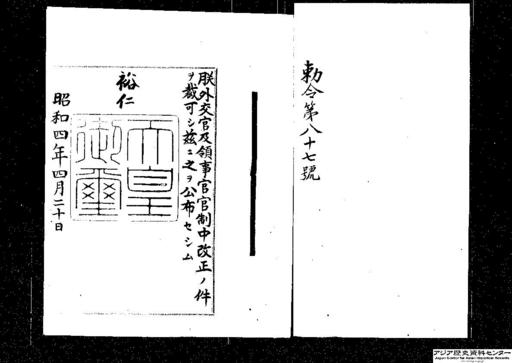 勅令第八十七號
朕外交官及領事官官制中改正ノ件
ヲ裁可シ茲ニ之ヲ公布セシム
裕仁
天皇
御璽
昭和四年四月二十日
アジア歴史資料センター
Japan Center for Asian Historical Records